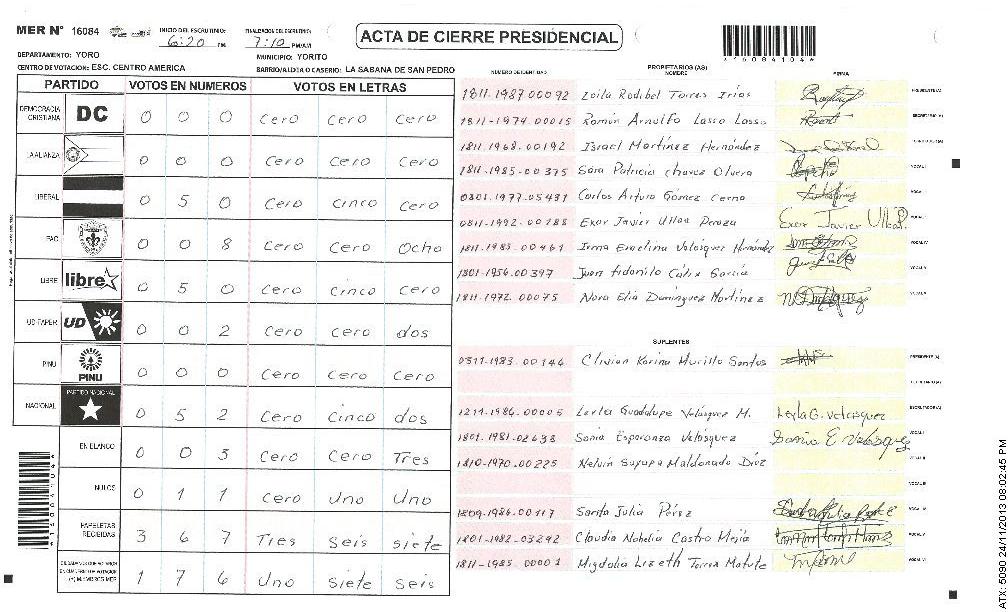 MER Nº 16084 INICIO DEL ESCRUTINIO: 6:20 PM FINALIZACION DEL ESCRUTINIO: 7:10 PM/AM
ACTA DE CIERRE PRESIDENCIAL
*16084104*
DEPARTAMENTO: YORO MUNICIPIO: YORITO
CENTRO DE VOTACION: ESC. CENTRO AMERICA BARRIO/ALDEA O CASERIO: LA SABANA DE SAN PEDRO
PARTIDO VOTOS EN NUMEROS VOTOS EN LETRAS
DEMOCRACIA CRISTIANA DC 0 0 0 Cero Cero Cero
LA ALIANZA 0 0 0 Cero Cero Cero
LIBERAL 0 5 0 Cero Cinco Cero
FAC 0 0 8 Cero Cero Ocho
LIBRE libre 0 5 0 Cero Cinco Cero
UD-FAPER UD 0 0 2 Cero Cero dos
PINU PINU 0 0 0 Cero Cero Cero
NACIONAL PARTIDO NACIONAL 0 5 2 Cero Cinco dos
EN BLANCO 0 0 3 Cero Cero Tres
NULOS 0 1 1 Cero Uno Uno
PAPELETAS RECIBIDAS 3 6 7 Tres seis siete
1 7 6 Uno siete seis
NUMERO DE IDENTIDAD PROPIETARIOS (AS) NOMBRE FIRMA
1811-1987-00092 Loila Rodibel Torres Irias PRESIDENTE(A)
1811-1974-00015 Román Arnulfo Lasso Lasso SECRETARIO(A)
1811-1968-00192 Israel Martínez Hernández
1811-1985-00375 Sara Patricia Chavez Olvera VOCAL I
0801-1977-05431 Carlos Arturo Gómez Cerna
0811-1992-00188 Exor Javier Ulloa Peraza Exor Javier Ulloa P.
1811-1985-00461 Irma Evaelina Velásquez Hernández VOCAL IV
1801-1956-00397 Juan Adonilo Cálix García VOCAL V
1811-1972-00075 Nora Elia Domínguez Martínez
SUPLENTES
0311-1983-00146 Clivian Karina Murillo Santos PRESIDENTE(A)
SECRETARIO(A)
1211-1986-00005 Leyla Guadalupe Velásquez M. Leyla G. Velasquez ESCRUTADOR(A)
1801-1981-02638 Sonia Esperanza Velásquez Sonia E Velasquez
1810-1970-00225 Nelvin Suyapa Maldonado Díaz
1809-1986-00117 Santa Julia Pérez
1801-1982-03242 Claudia Nohelia Castro Mejía
1811-1985-00001 Migdalia Lizeth Torres Matute
ATX: 5090 24/11/2013 08:02:45 PM